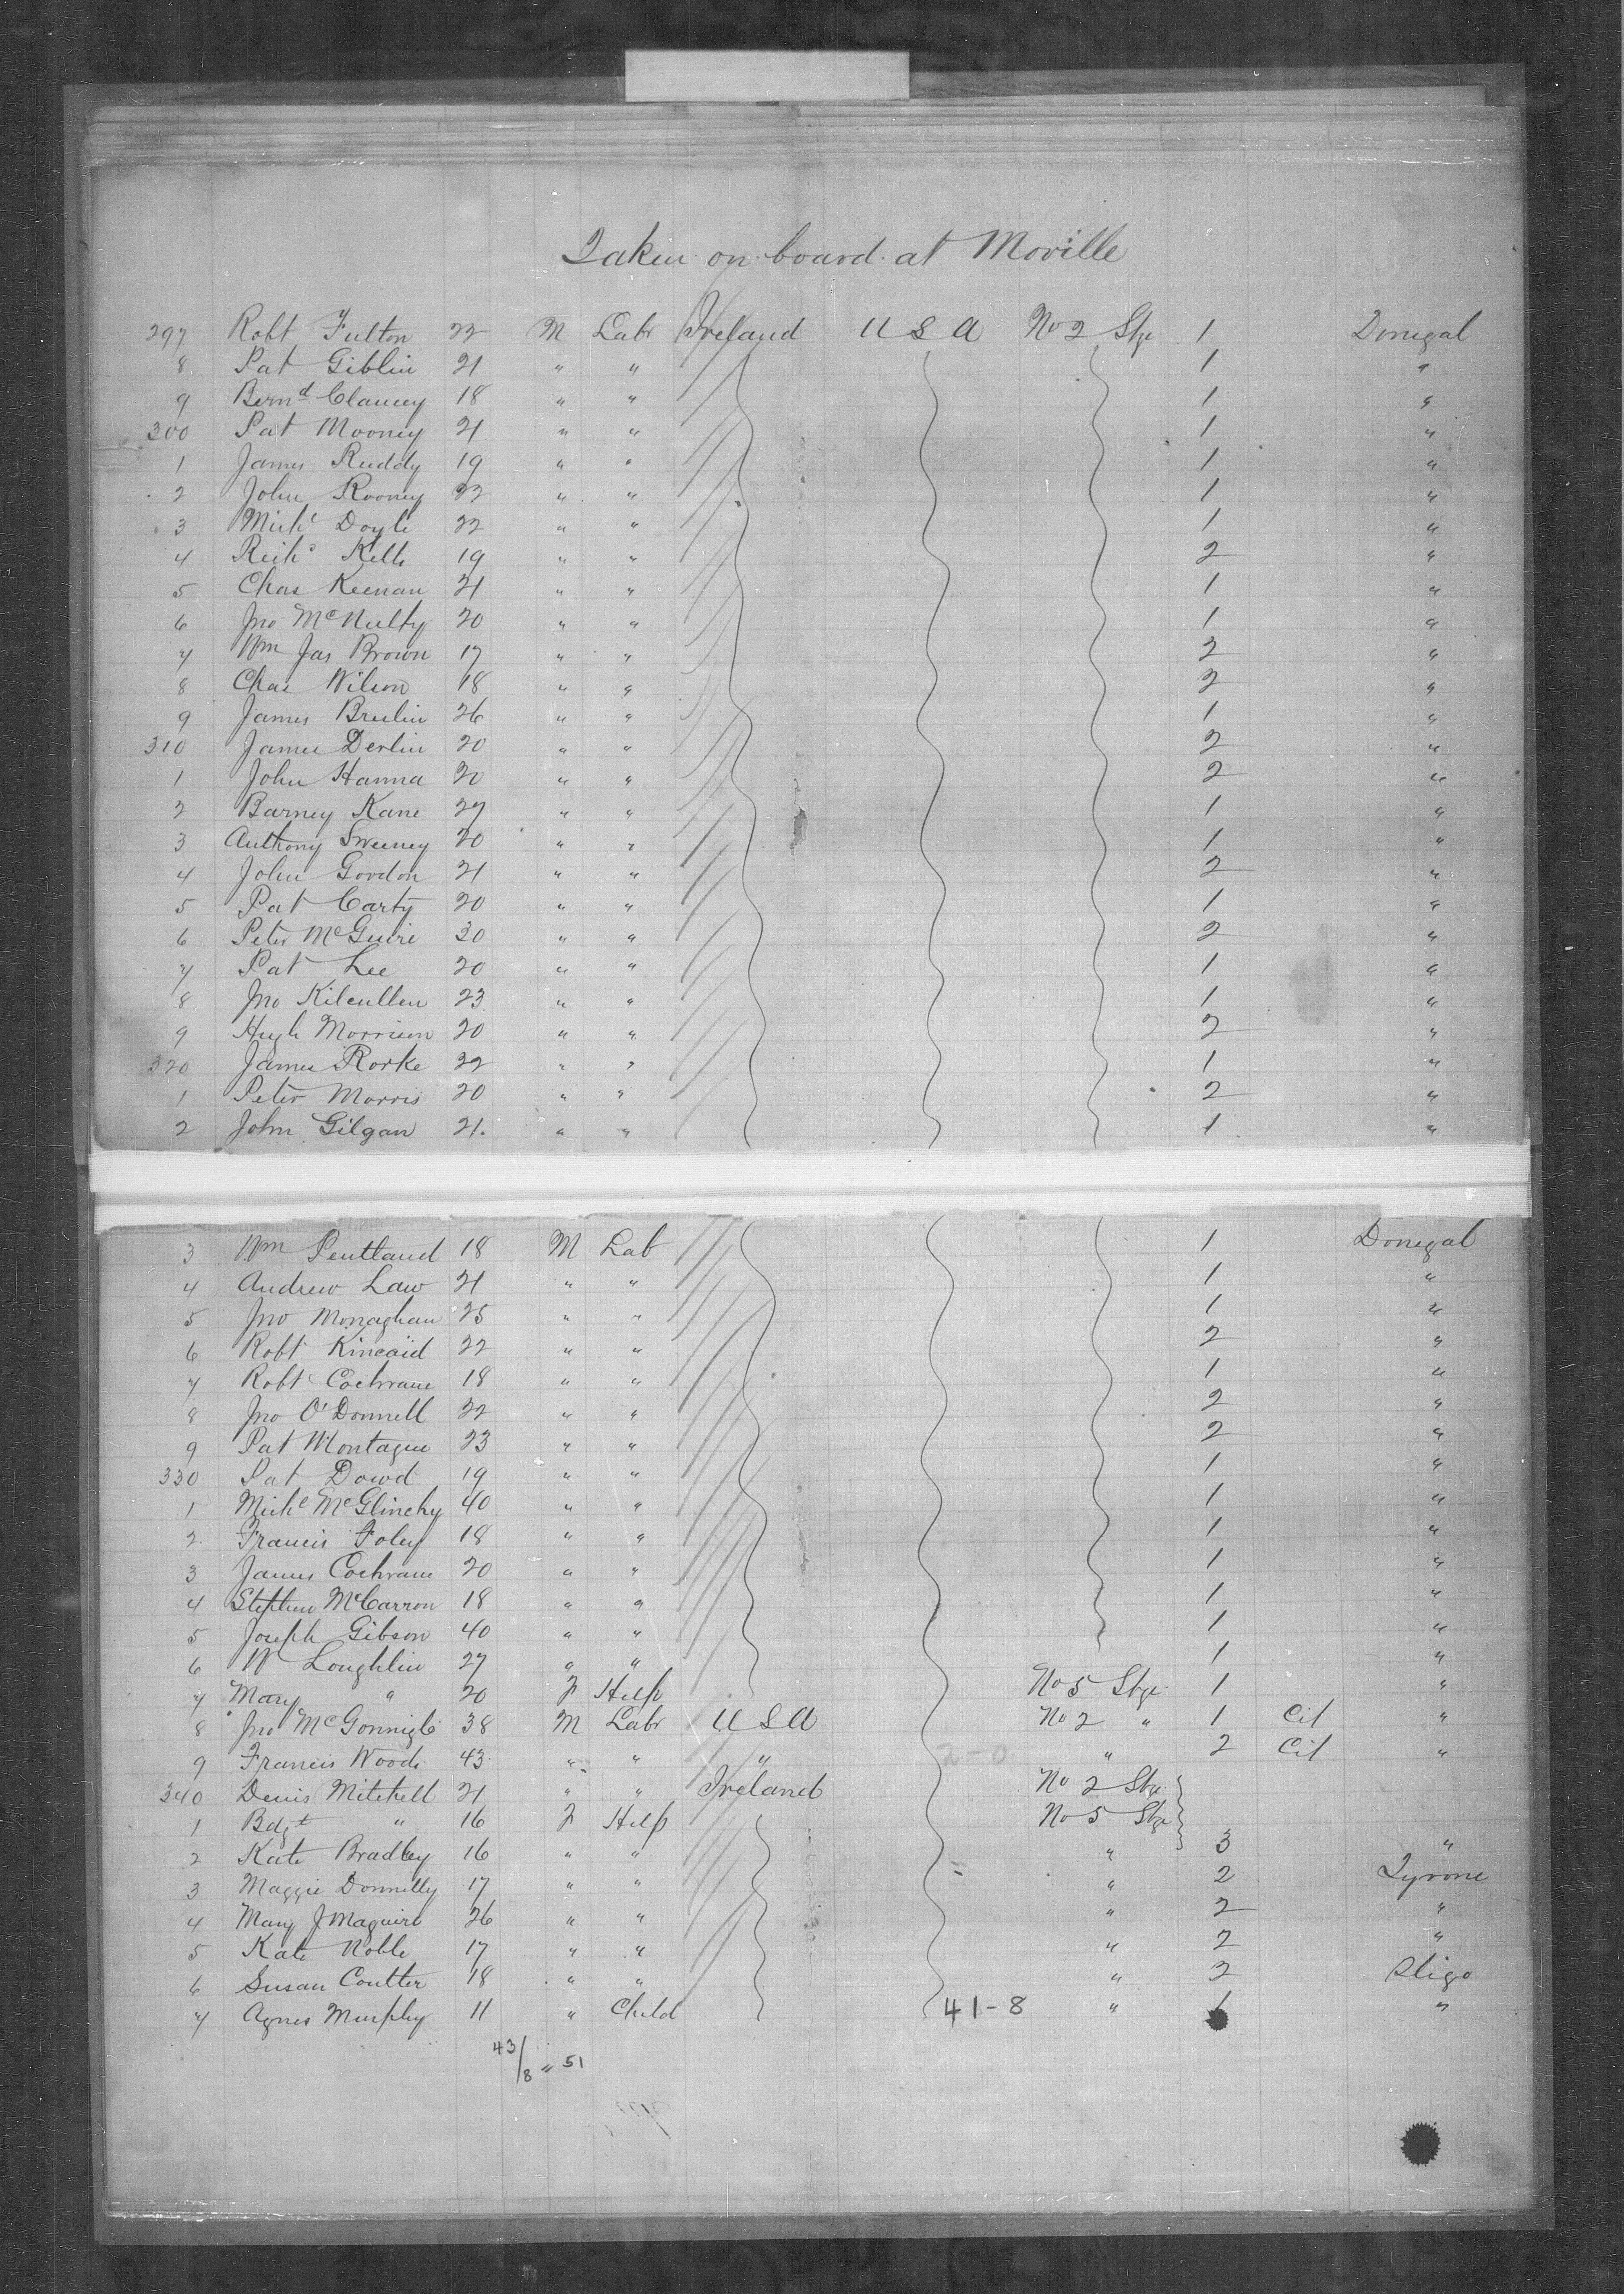 Taken on board at Moville
297 Robt Fulton 22 M Labr Ireland U S A No 2 Stge 1 Donegal
8 Pat Giblin 21 " " 1 "
9 Bernd Clancey 18 " " 1 "
300 Pat Mooney 21 " " 1 "
1 James Ruddy 19 " " 1 "
2 John Rooney 22 " " 1 "
3 Michl Doyle 22 " " 1 "
4 Richd Kelly 19 " " 2 "
5 Chas Keenan 21 " " 1 "
6 Jno McNulty 20 " " 1 "
7 Wm Jas Brown 17 " " 2 "
8 Chas Wilson 18 " " 2 "
9 James Breslin 26 " " 1 "
310 James Devlin 20 " " 2 "
1 John Hanna 20 " " 2 "
2 Barney Kane 27 " " 1 "
3 Anthony Sweeney 20 " " 1 "
4 John Gordon 21 " " 2 "
5 Pat Carty 20 " " 1 "
6 Peter McGuire 30 " " 2 "
7 Pat Lee 20 " " 1 "
8 Jno Kilcullen 23 " " 1 "
9 Hugh Morrison 20 " " 2 "
320 James Rorke 22 " " 1 "
1 Peter Morris 20 " " 2 "
2 John Gilgan 21. " " 1 "
3 Wm Pentland 18 M Lab 1 Donegal
4 Andrew Law 21 " " 1 "
5 Jno Monaghan 25 " " 1 "
6 Robt Kincaid 22 " " 2 "
7 Robt Cochrane 18 " " 1 "
8 Jno O'Donnell 22 " " 2 "
9 Pat Montague 23 " " 2 "
330 Pat Dowd 19 " " 1 "
1 Michl McGlinchy 40 " " 1 "
2 Francis Foley 18 " " 1 "
3 James Cochrane 20 " " 1 "
4 Stephen McCarron 18 " " 1 "
5 Joseph Gibson 40 " " 1 "
6 W Loughlin 27 " " 1 "
7 Mary " 20 F Help No 5 Stge 1 "
8 Jno McGonnigle 38 M Labr U S A No 2 " 1 Cit "
9 Francis Woods 43 " " " 2-0 " 2 Cit "
340 Denis Mitchell 21 " " Ireland No 2 Stge
1 Bdgt " 16 F Help No 5 Stge
2 Kate Bradley 16 " " " 3 "
3 Maggie Donnelly 17 " " " 2 Tyrone
4 Mary J Maguire 26 " " " 2 "
5 Kate Noble 17 " " " 2 "
6 Susan Coulter 18 " " " 2 Sligo
7 Agnes Murphy 11 " Child 41-8 " 1 "
43/8 " 51